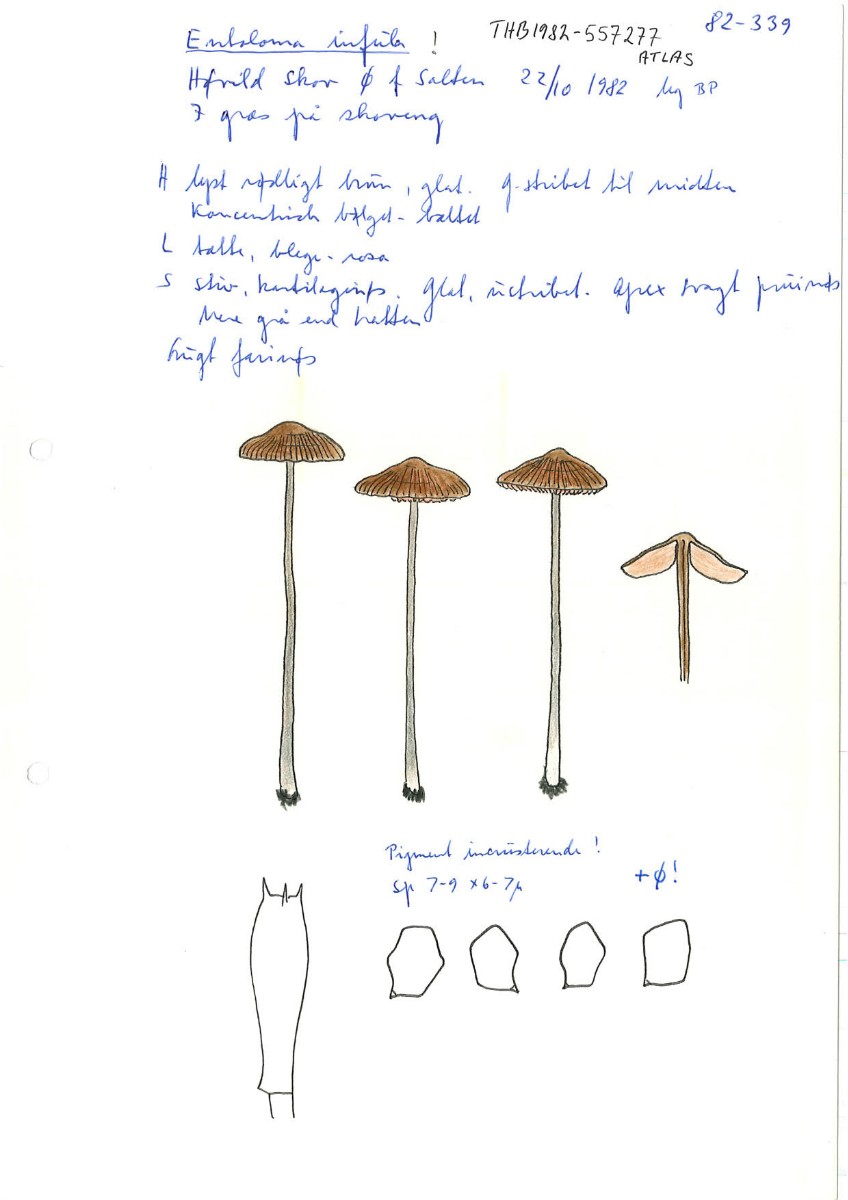 Entoloma infula !
THB1982-557277
ATLAS
82-339
Skov Ø f Salten 22/10 1982 leg BP
I græs på skoveng
H lyst rødligt brun, glat. g. stribet til midten
Koncentrisk bølget - bæltet
L tætte, blege - rosa
S stiv, kartilaginøs. Glat, ustribet. Apex svagt pruinøs
Mere grå end hatten
Lugt farinøs
Pigment incrusterende !
sp 7-9 x 6-7µ
+ø!